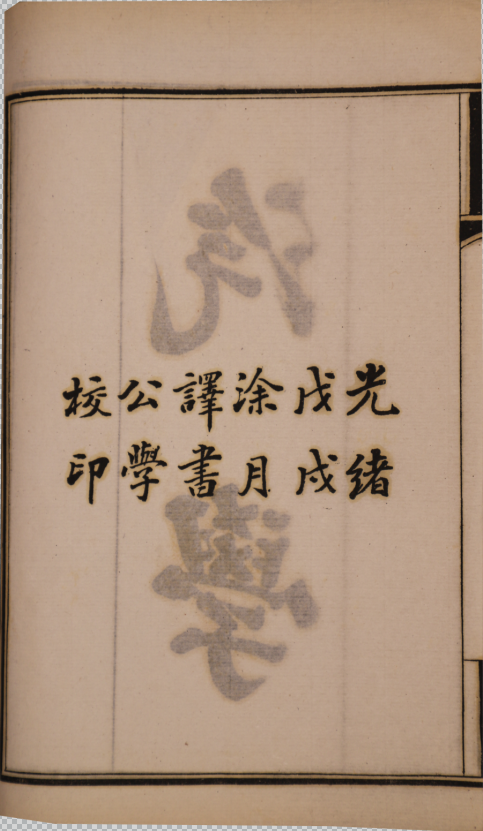 光緒
戊戌
涂月
譯書
公學
校印
汽學